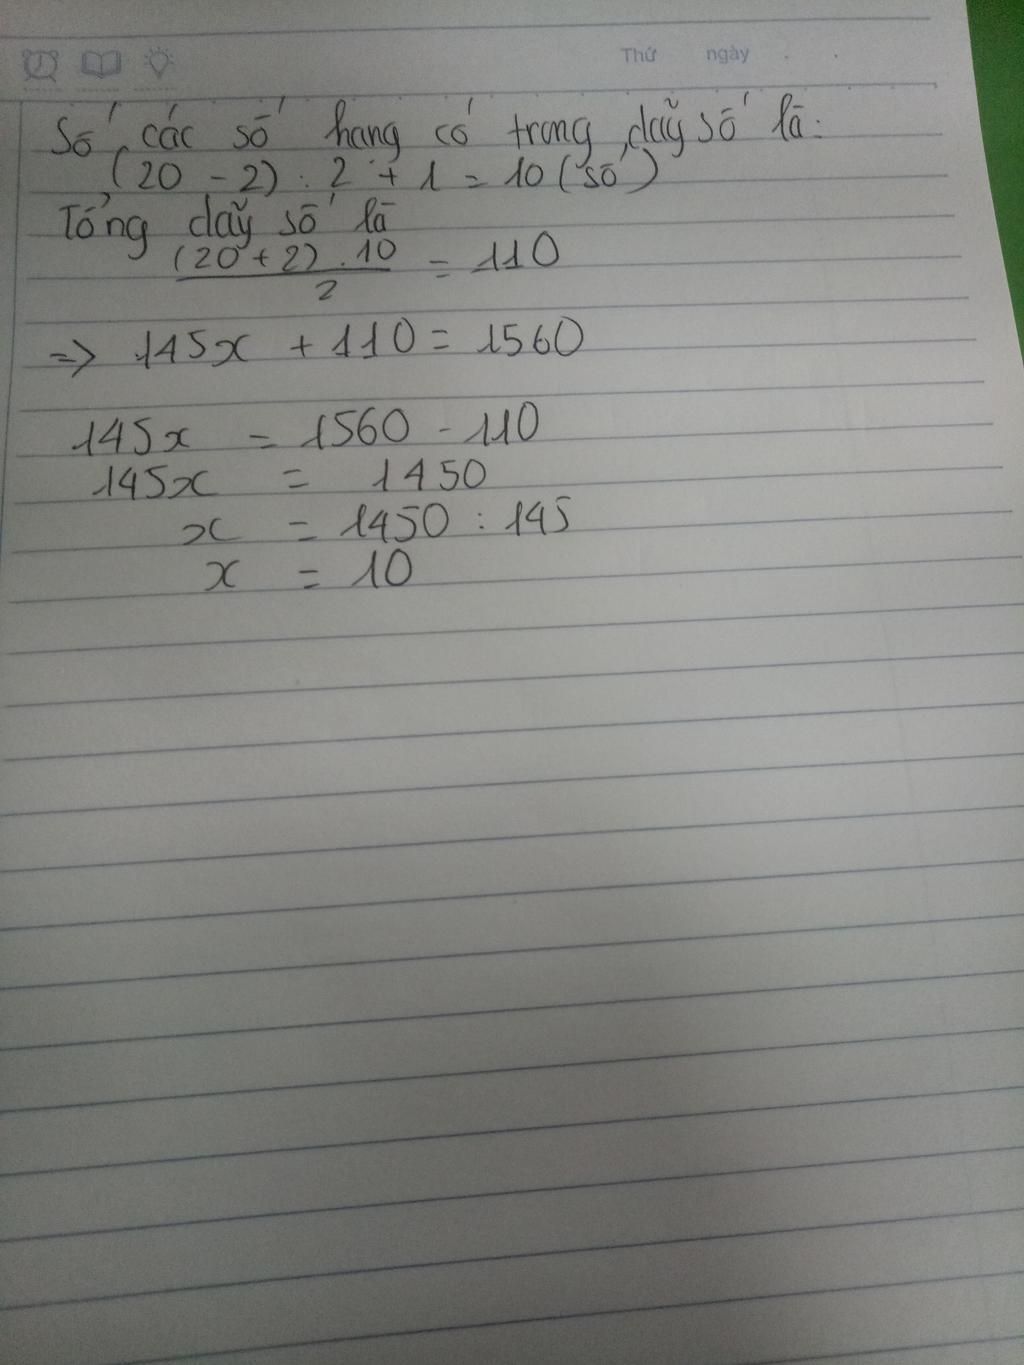 Thứ ngày . .
Số các số hang có trong dãy số là:
(20 - 2) : 2 + 1 = 10 (số)
Tổng dãy số là
(20 + 2) . 10
2
= 110
=> 145x + 110 = 1560
145x = 1560 - 110
145x = 1450
x = 1450 : 145
x = 10